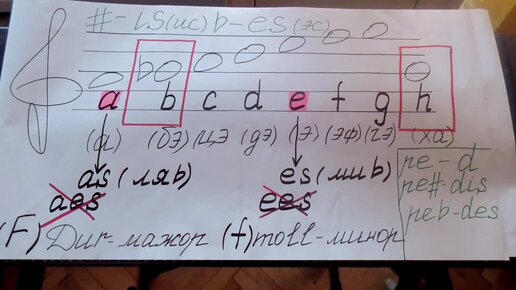 #-is(ис) b-es(эс)
b
a b c d e f g h
(а) (бэ) (цэ (дэ) (э) (эф) (гэ) (ха)
as (ляb) es (миb)
aes ees
ре-d
ре#-dis
реb-des
(F) Дur-мажор (f) moll-минор